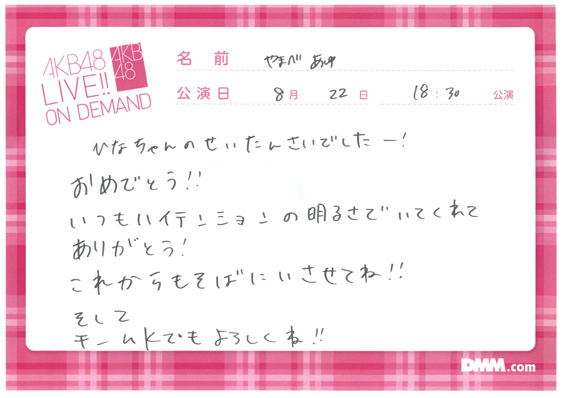 AKB48
LIVE!!
ON DEMAND
AKB
48
名前 やまべ あゆ
公演日 8月 22日 18:30 公演
ひなちゃんのせいたんさいでしたー!
おめでとう!!
いつもハイテンションの明るさでいてくれて
ありがとう!
これからもそばにいさせてね!!
そして
チームKでもよろしくね!!
DMM.com